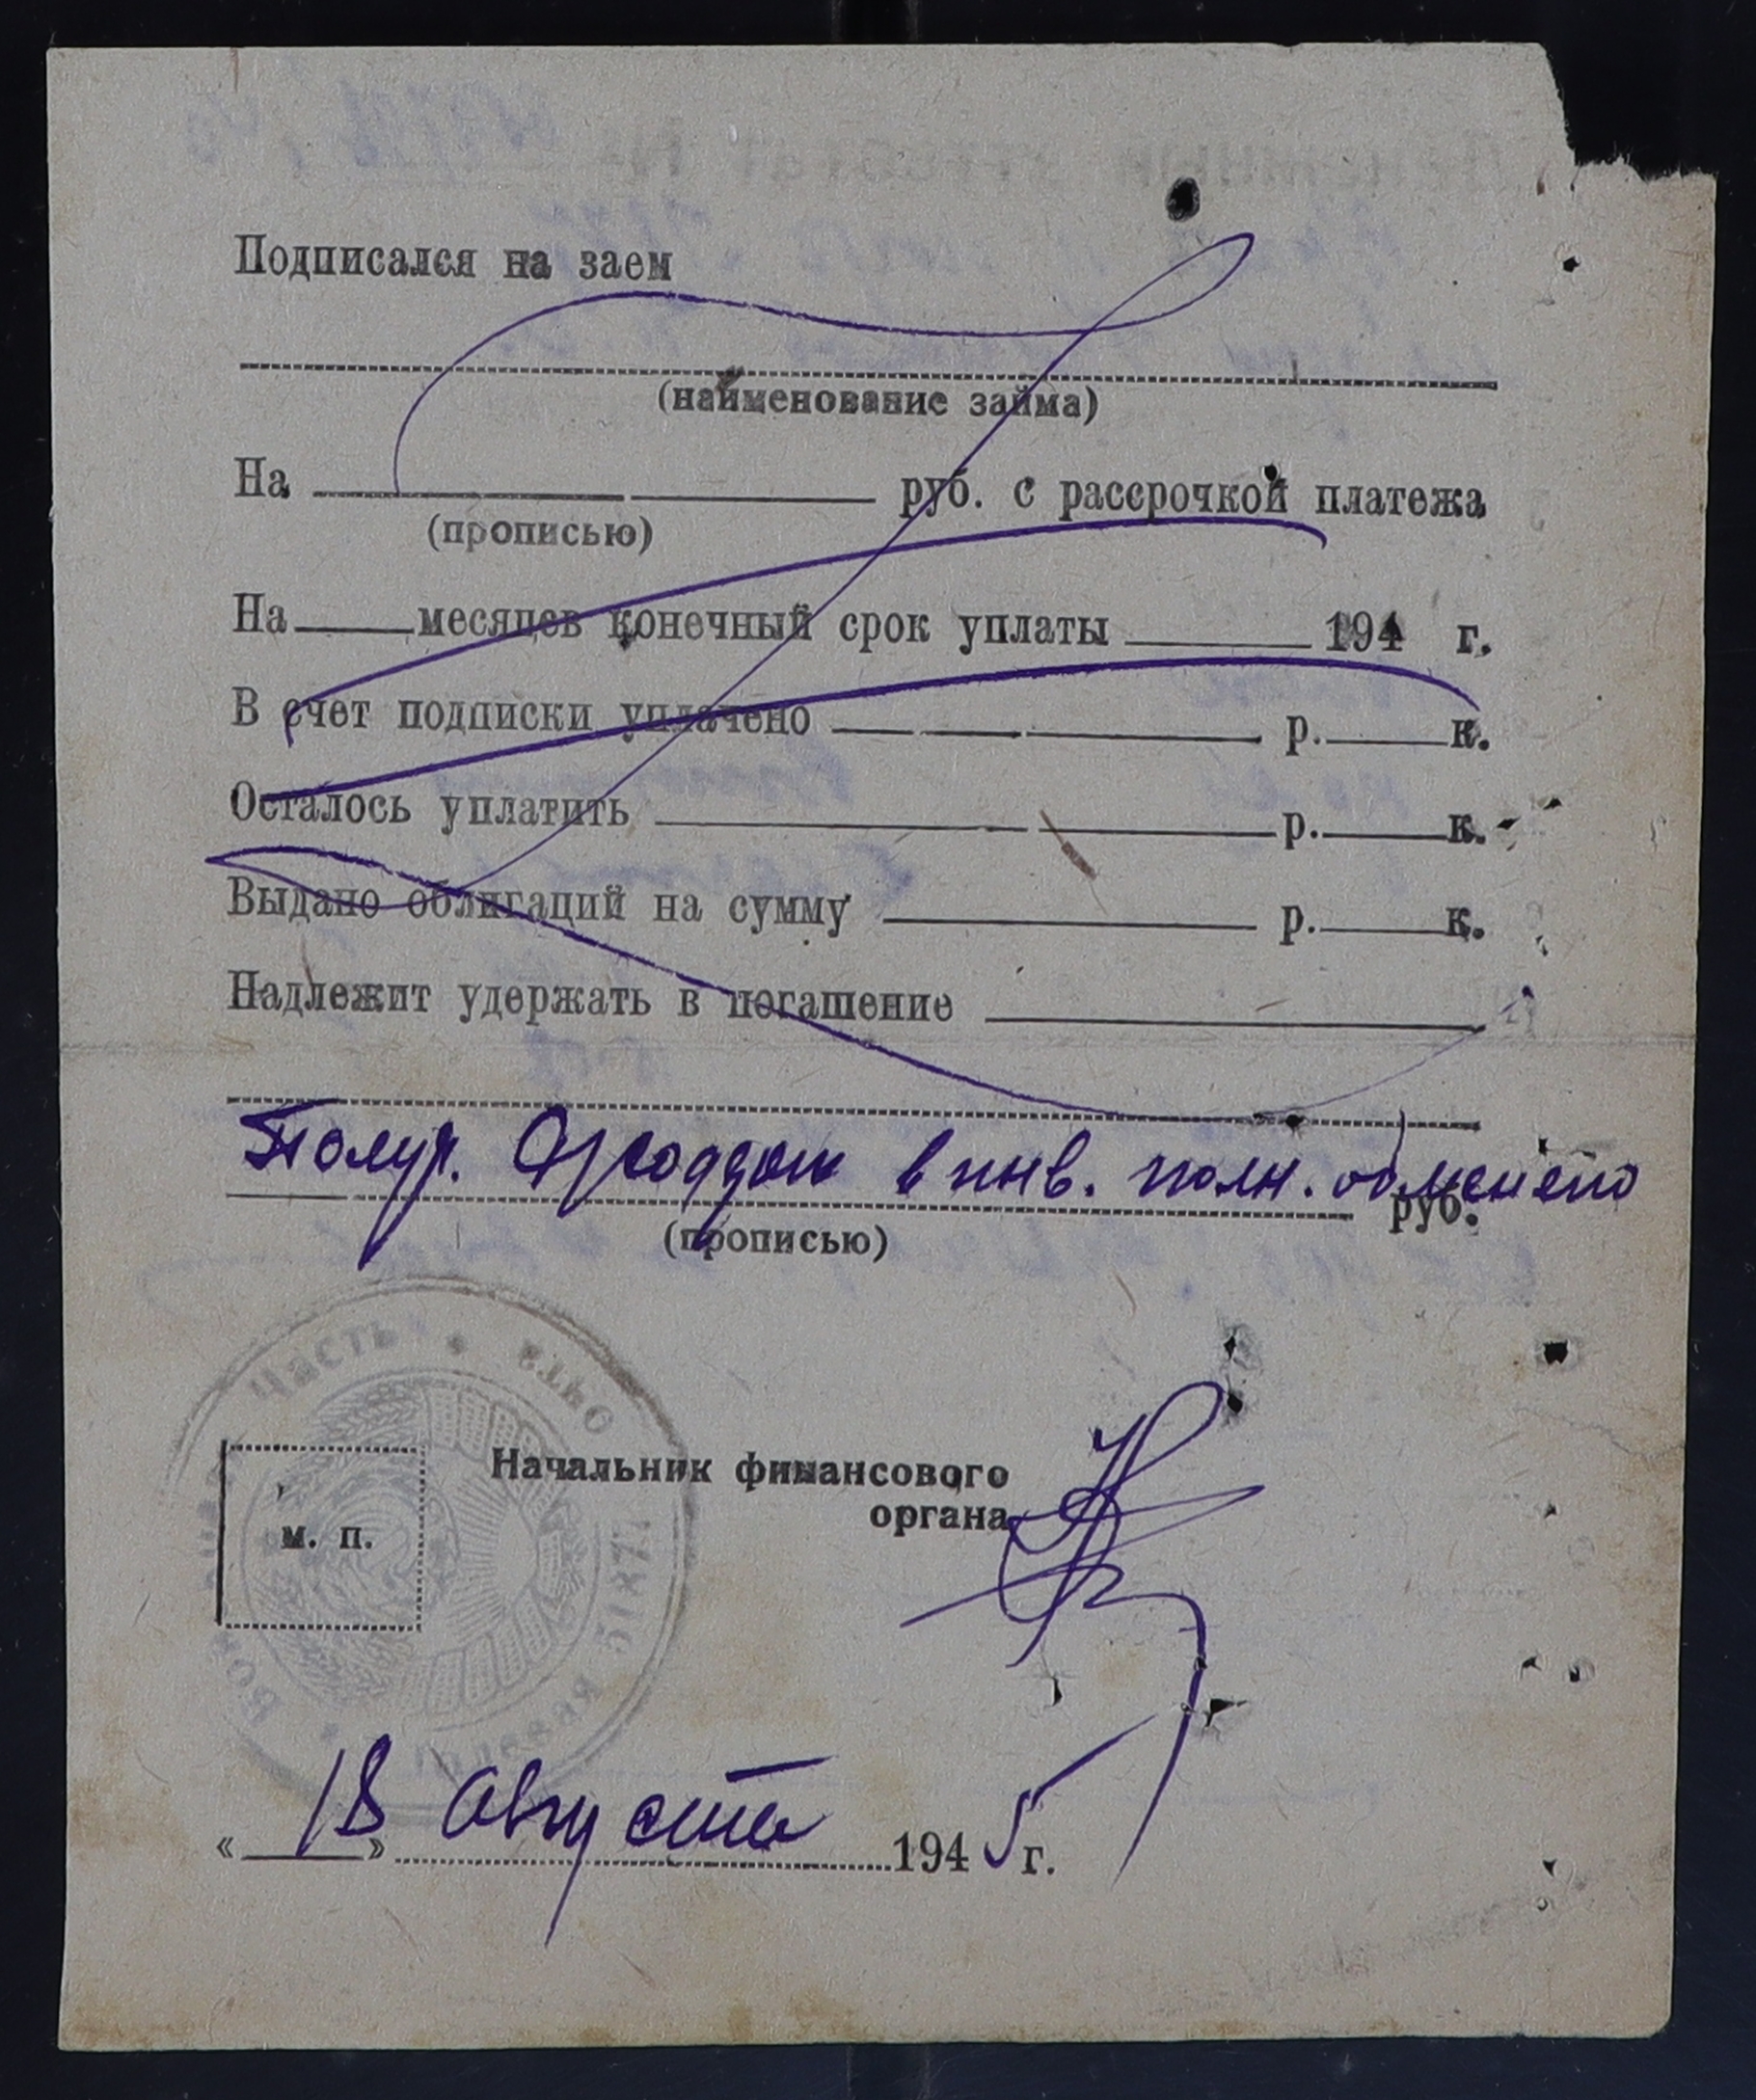 Подписался на заем
(наименование займа)
На руб. с рассрочкой платежа
(прописью)
На месяцев конечный срок уплаты 194 г.
В счет подписки уплачено р. к.
Осталось уплатить р. к.
Выдано облигаций на сумму р. к.
Надлежит удержать в погашение
в инв. полн.
руб.
(прописью)
часть
Начальник финансового
органа
м. п.
« 18 » Августа 1945 г.